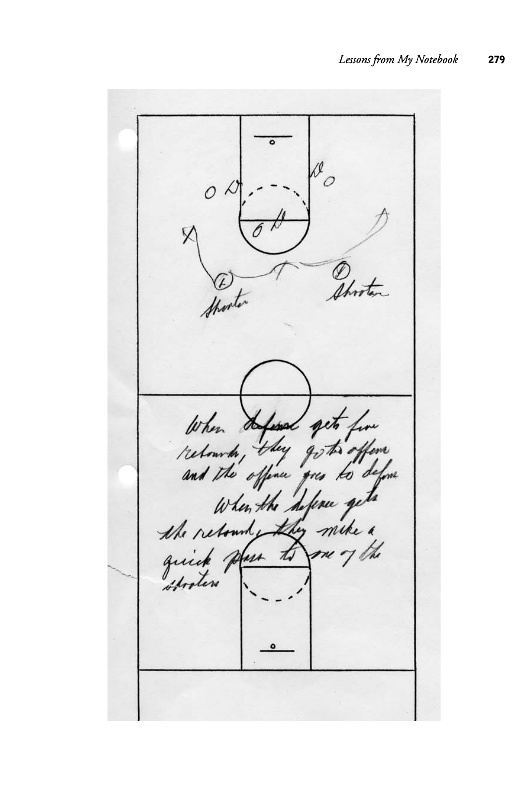 Lessons from My Notebook 279
O D D O
O D
X
Shooter
Shooter
When defense gets five
rebounds, they go to offense
and the offense goes to defense
When the defense gets
the rebound, they make a
quick pass to one of the
shooters